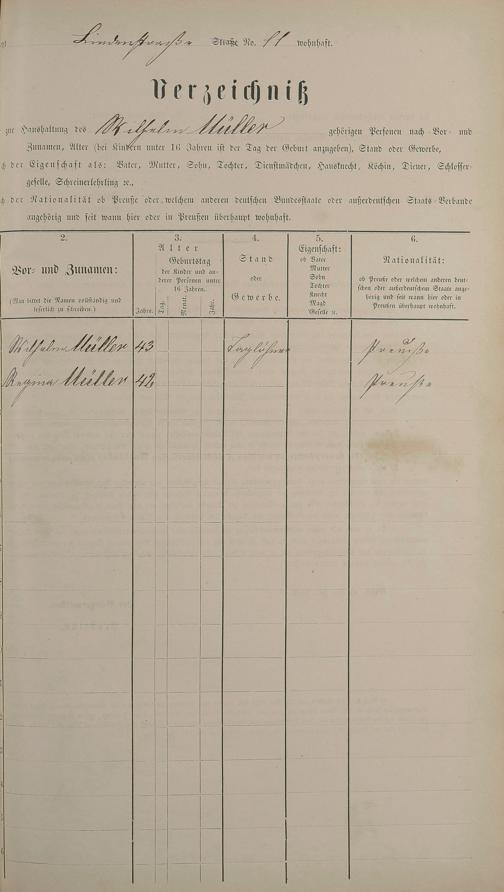 Lindenstraße Straße No. 11 wohnhaft.
Verzeichniß
zur Haushaltung des Wilhelm Müller gehörigen Personen nach Vor- und
Zunamen, Alter (bei Kindern unter 16 Jahren ist der Tag der Geburt anzugeben), Stand oder Gewerbe,
der Eigenschaft als: Vater, Mutter, Sohn, Tochter, Dienstmädchen, Hausknecht, Köchin, Diener, Schlosser-
geselle, Schreinerlehrling ꝛc.,
der Nationalität ob Preuße oder welchem anderen deutschen Bundesstaate oder außerdeutschen Staats-Verbande
angehörig und seit wann hier oder in Preußen überhaupt wohnhaft.
2. 3. 4. 5. 6.
Vor- und Zunamen:
(Man bittet die Namen vollständig und
leserlich zu schreiben.)
Alter
Geburtstag
der Kinder und an-
derer Personen unter
16 Jahren.
Jahre. Tag. Monat. Jahr.
Stand
oder
Gewerbe.
Eigenschaft:
ob Vater
Mutter
Sohn
Tochter
Knecht
Magd
Geselle ꝛc.
Nationalität:
ob Preuße oder welchem anderen deut-
schen oder außerdeutschen Staate ange-
hörig und seit wann hier oder in
Preußen überhaupt wohnhaft.
Wilhelm Müller 43 Taglöhner Preuße
Regina Müller 42 Preuße